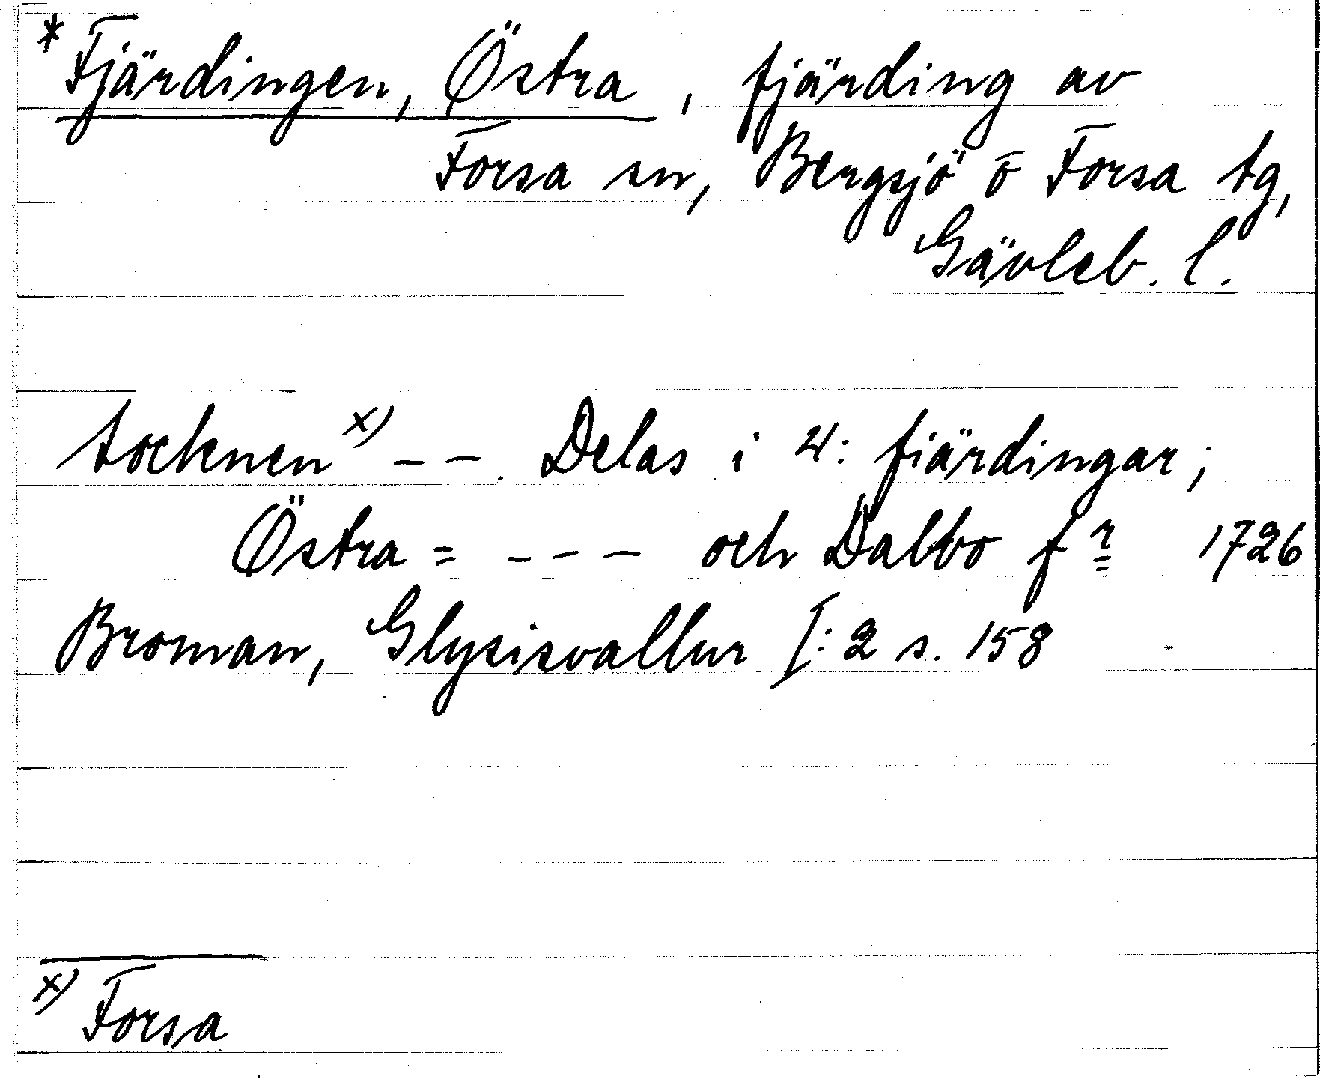 * Fjärdingen, Östra, fjärding av
Forsa sn, Bergsjö o Forsa tg,
Gävleb. l.
tocknen x) -- Delas i 4: fiärdingar;
Östra = --- och Dalbo fr 1726
Broman, Glysisvallur I:2 s. 158
x) Forsa